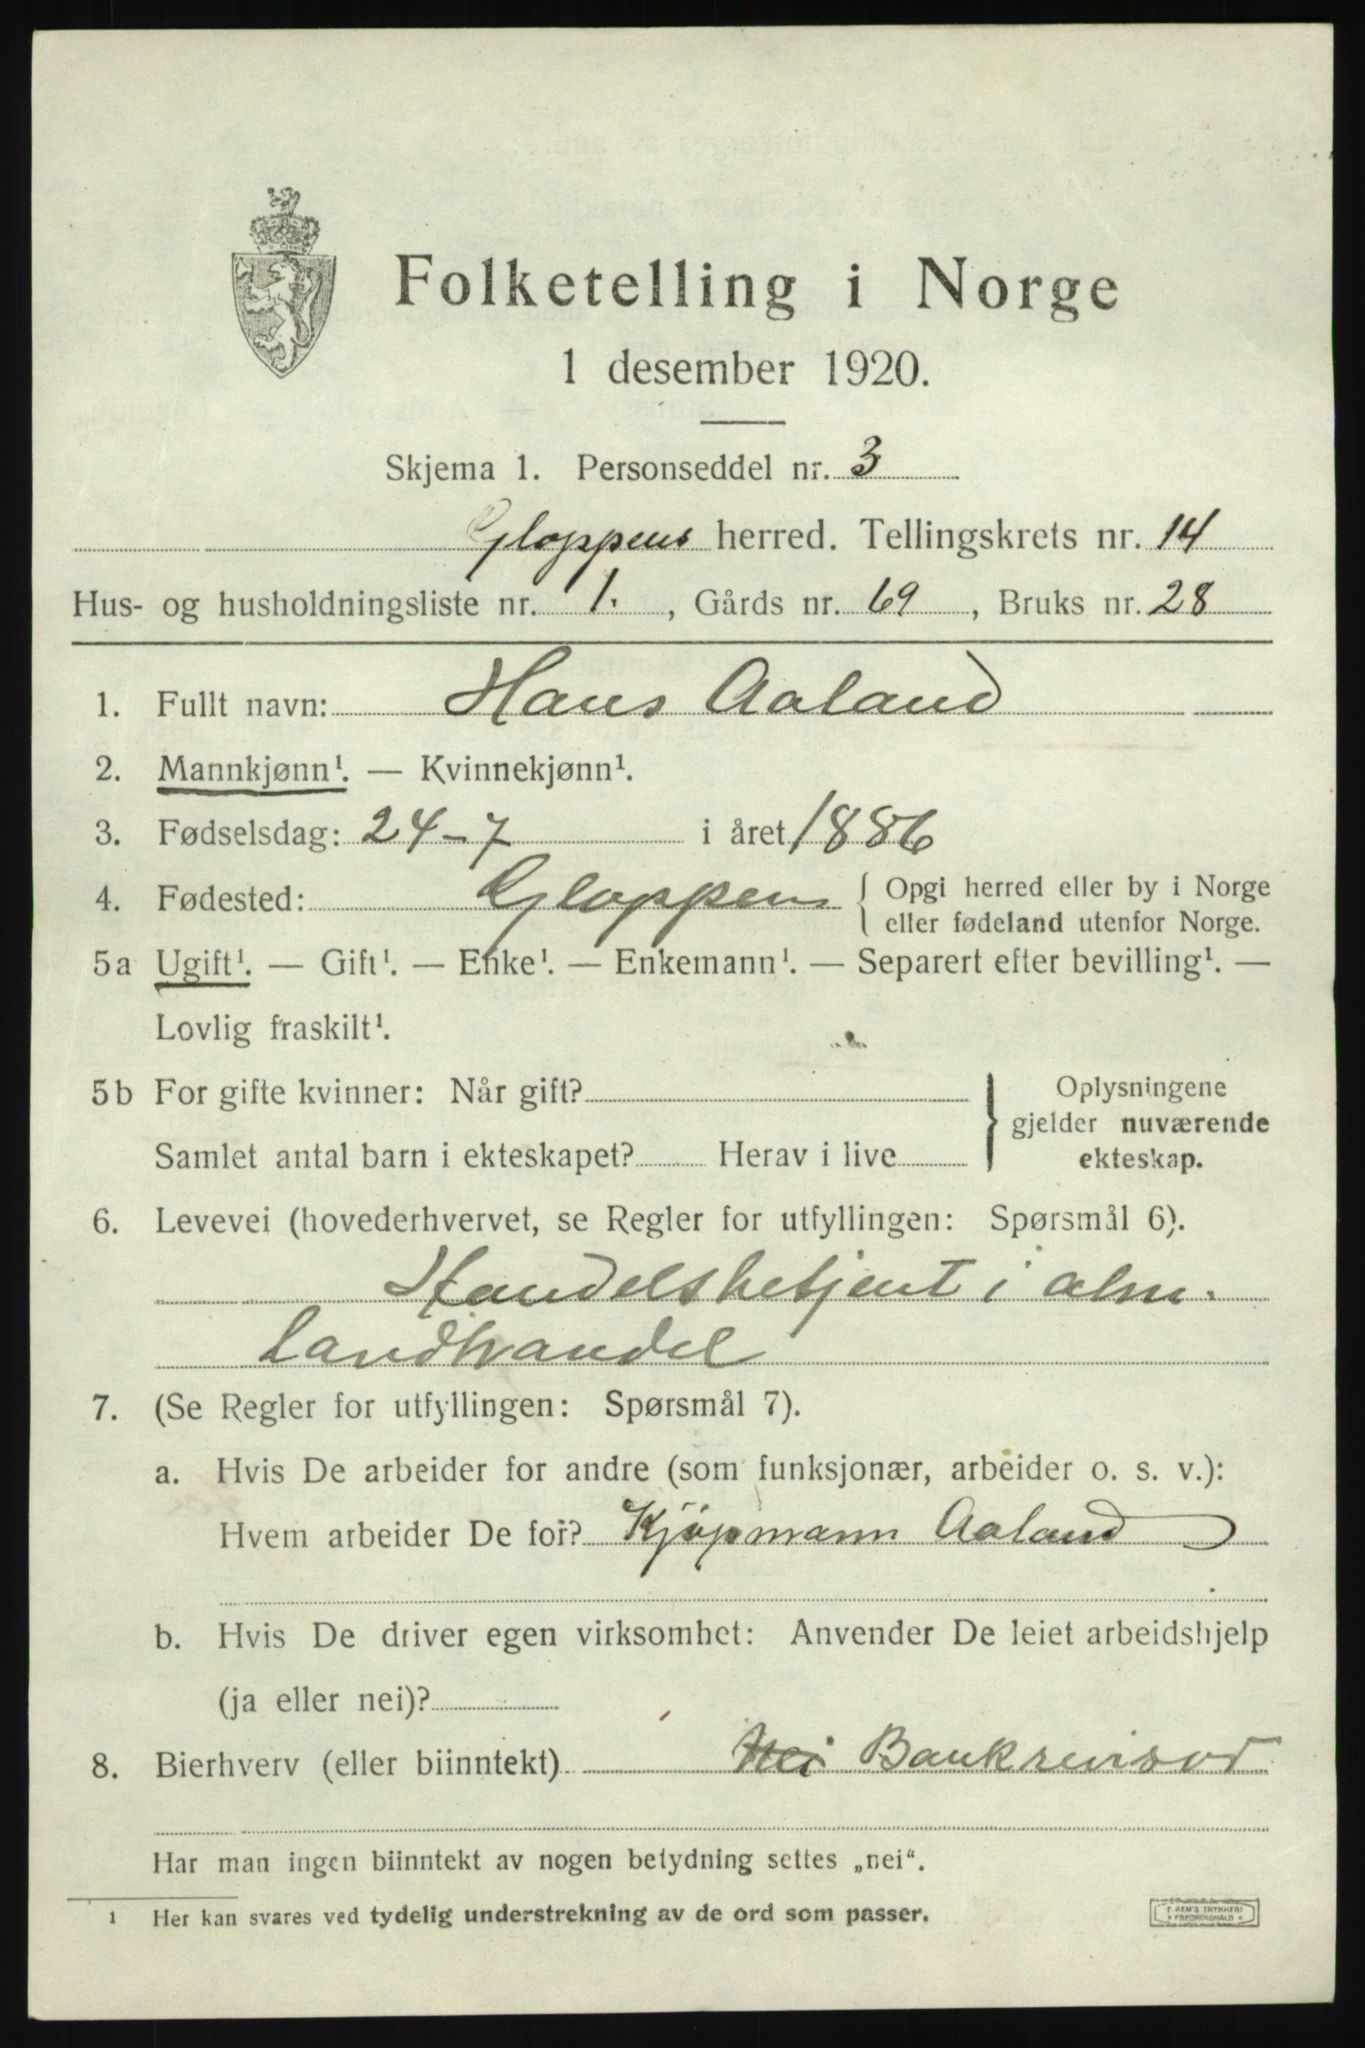 Folketelling i Norge
1 desember 1920.
Skjema 1. Personseddel nr. 3
Gloppens herred. Tellingskrets nr. 14
Hus- og husholdningsliste nr. 1. , Gårds nr. 69 , Bruks nr. 28
1. Fullt navn: Hans Aaland
2. Mannkjønn¹. — Kvinnekjønn¹.
3. Fødselsdag: 24-7 i året 1886
4. Fødested: Gloppen { Opgi herred eller by i Norge
eller fødeland utenfor Norge.
5a Ugift¹. — Gift¹. — Enke¹. — Enkemann¹. — Separert efter bevilling¹. —
Lovlig fraskilt¹.
5b For gifte kvinner: Når gift?
Samlet antal barn i ekteskapet? Herav i live
Oplysningene
gjelder nuværende
ekteskap.
6. Levevei (hovederhvervet, se Regler for utfyllingen: Spørsmål 6).
Handelsbetjent i alm.
landhandel
7. (Se Regler for utfyllingen: Spørsmål 7).
a. Hvis De arbeider for andre (som funksjonær, arbeider o. s. v.):
Hvem arbeider De for? Kjøpmann Aaland
b. Hvis De driver egen virksomhet: Anvender De leiet arbeidshjelp
(ja eller nei)?
8. Bierhverv (eller biinntekt) Nei Bankrevisor
Har man ingen biinntekt av nogen betydning settes „nei“.
1 Her kan svares ved tydelig understrekning av de ord som passer.
TRYKKERI
FREDRIKSHALD